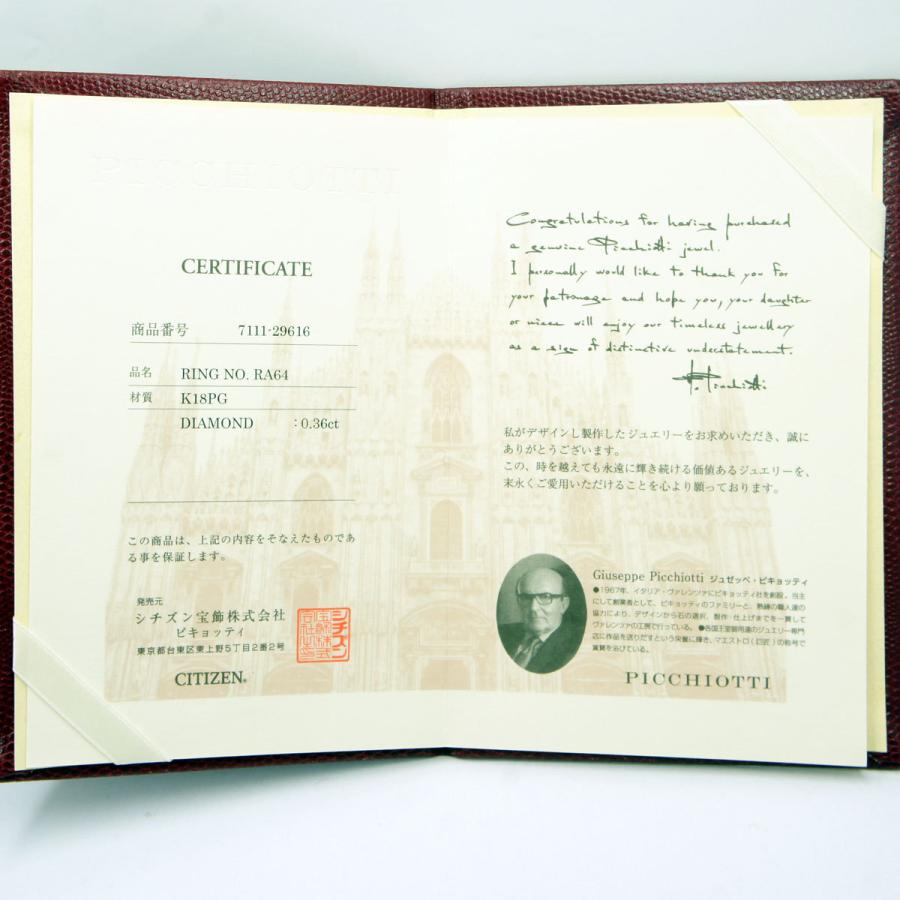 PICCHIOTTI
CERTIFICATE
商品番号 7111-29616
品名 RING NO. RA64
材質 K18PG
DIAMOND :0.36ct
この商品は、上記の内容をそなえたものであ
る事を保証します。
発売元
シチズン宝飾株式会社
ピキョッティ
東京都台東区東上野5丁目2番2号
CITIZEN®
シチズン
宝飾株式
会社之印
Congratulations for having purchased
a genuine Picchiotti jewel.
I personally would like to thank you for
your patronage and hope you, your daughter
or niece will enjoy our timeless jewellery
as a sign of distinctive understatement.
G. Picchiotti
私がデザインし製作したジュエリーをお求めいただき、誠に
ありがとうございます。
この、時を越えても永遠に輝き続ける価値あるジュエリーを、
末永くご愛用いただけることを心より願っております。
Giuseppe Picchiotti ジュゼッペ・ピキョッティ
●1967年、イタリア・ヴァレンツァにピキョッティ社を創設。当主
にして創業者として、ピキョッティのファミリーと、熟練の職人達の
協力により、デザインから石の選択、製作・仕上げまでを一貫して
ヴァレンツァの工房で行っている。●各国王室御用達のジュエリー専門
店に作品を送りだすという栄誉に輝き、マエストロ(巨匠)の称号で
賞賛を浴びている。
PICCHIOTTI